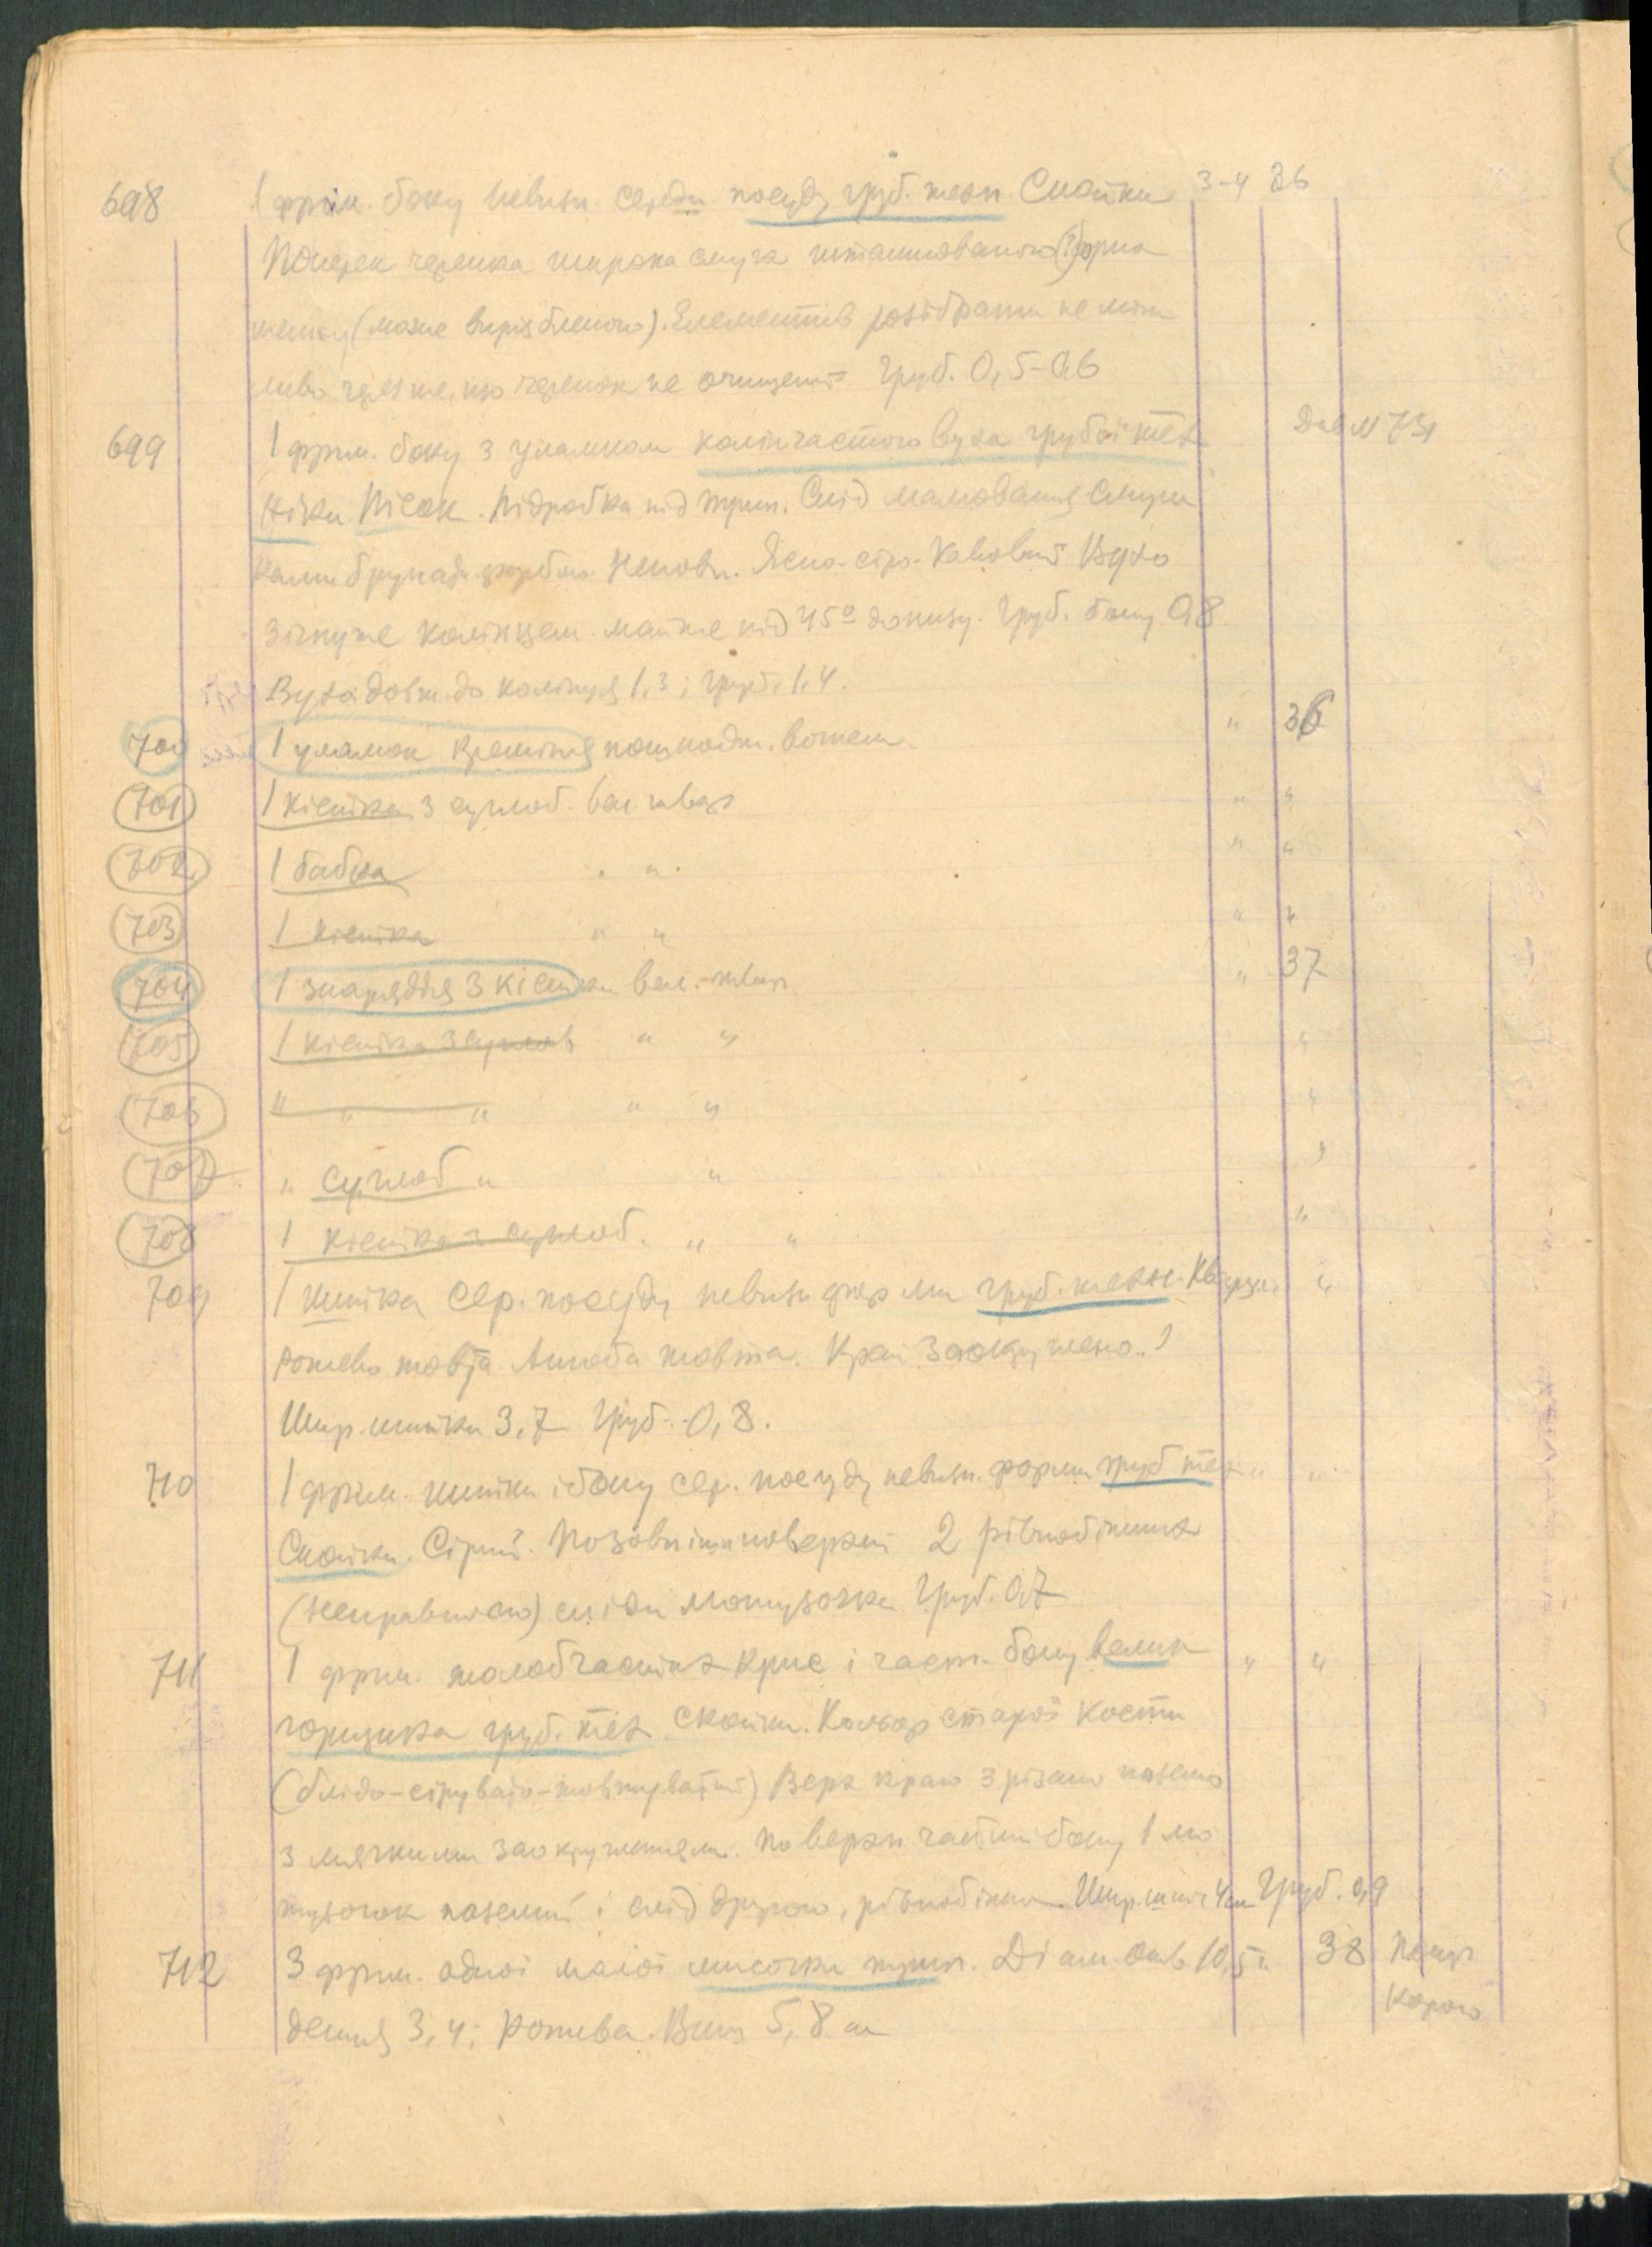 698 1 фрґм. боку невизн. середн. посуду груб. техн. Скойки 3-4 36
Поперек черепка широка смуга штампованого (?) орна
менту (може виріз бленого). Елементів розібрати не мож
ливо через те, що черепок не очищений Груб. 0,5-0,6
699 1 фрґм. боку з уламком колінчастого вуха грубої тех
ніки. Пісок. Підробка під трип. Слід мальовання смуж
ками брунатн. фарбою. Неповн. Ясно-сіро-кавовий Вухо
зігнуте колінцем майже під 45° донизу. Груб. боку 0,8
Вуха довж. до колінця 1,3; груб. 1,4.
700 1 уламок кремінця пошкодж. вогнем. " 36
701 1 кістка з суглоб. вел. твар " "
702 1 бабка " " " "
703 1 кістка " " " "
704 1 знаряддя з кістки вел. твар " 37
705 1 кістка з суглоб " " "
706 " " " " " "
707 " суглоб " " "
708 1 кістка з суглоб. " " "
709 1 шийка сер. посуду невизн форми груб. техн. Кварц. "
рожево жовта Ангоба жовта. Край заокруглено.
Шир. шийки 3,7 Груб. 0,8.
710 1 фрґм. шийки і боку сер. посуду невизн. форми груб тех " "
Скойки. Сірий. По зовнішн поверхні 2 рівнобіжних
(неправильно) сліди мотузочка Груб. 0,7
711 1 фрґм. жолобчастих крис і част. боку велик " "
горщика груб. тех Скойки. Кольор старої кости
(блідо-сірувато-жовтуватий) Верх краю зрізано косело
з мягкими заокругленням. По верхн частині боку 1 мо
тузочок и слід другого, рівнобіжно. Шир. ший 4 см Груб. 0,9
712 3 фрґм. одної малої мисочки трип. Діам. отв. 10,5 " 38
денця 3,4; Рожева. Вис 5,8 см